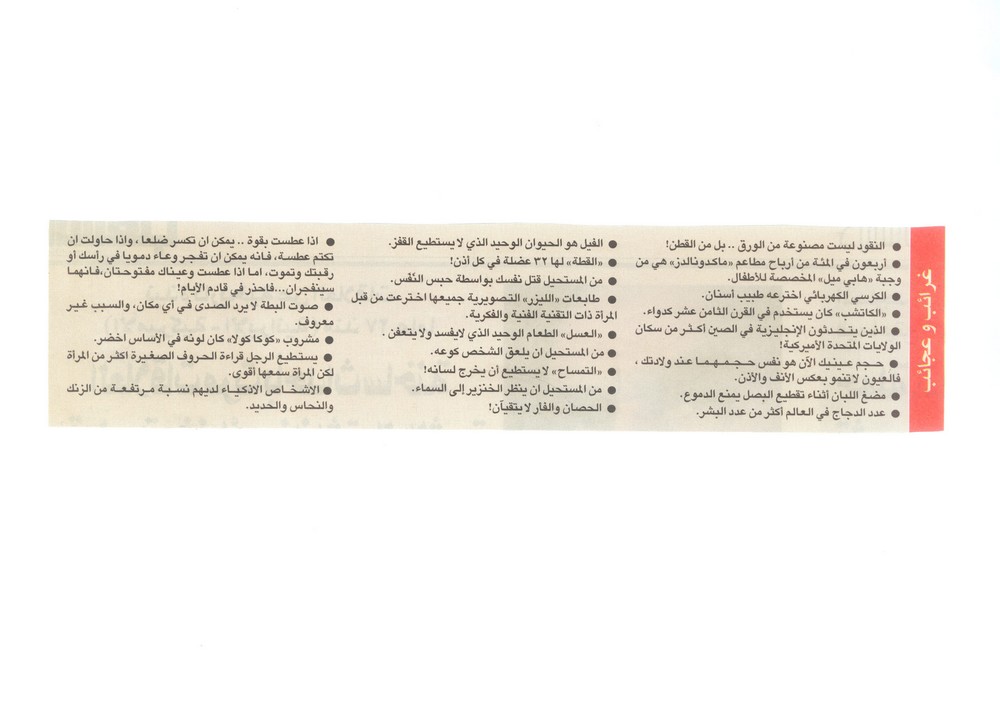 غرائب و عجائب
● النقود ليست مصنوعة من الورق .. بل من القطن!
● أربعون في المئة من أرباح مطاعم «ماكدونالدز» هي من
وجبة «هابي ميل» المخصصة للأطفال.
● الكرسي الكهربائي اخترعه طبيب أسنان.
● «الكاتشب» كان يستخدم في القرن الثامن عشر كدواء.
● الذين يتحدثون الإنجليزية في الصين أكثر من سكان
الولايات المتحدة الأميركية!
● حجم عينيك الآن هو نفس حجمهما عند ولادتك ،
فالعيون لا تنمو بعكس الأنف والأذن.
● مضغ اللبان أثناء تقطيع البصل يمنع الدموع.
● عدد الدجاج في العالم أكثر من عدد البشر.
● الفيل هو الحيوان الوحيد الذي لا يستطيع القفز.
● «القطة» لها ٣٢ عضلة في كل أذن!
● من المستحيل قتل نفسك بواسطة حبس النَّفَس.
● طابعات «الليزر» التصويرية جميعها اخترعت من قبل
المرأة ذات التقنية الفنية والفكرية.
● «العسل» الطعام الوحيد الذي لايفسد ولا يتعفن .
● من المستحيل ان يلعق الشخص كوعه.
● «التمساح» لا يستطيع أن يخرج لسانه!
● من المستحيل ان ينظر الخنزير إلى السماء.
● الحصان والفار لا يتقيآن!
● اذا عطست بقوة .. يمكن ان تكسر ضلعا ، واذا حاولت ان
تكتم عطسة، فانه يمكن ان تفجر وعاء دمويا في رأسك أو
رقبتك وتموت، اما اذا عطست وعيناك مفتوحتان،فانهما
سينفجران...فاحذر في قادم الأيام!
● صوت البطة لا يرد الصدى في أي مكان، والسبب غير
معروف.
● مشروب «كوكا كولا» كان لونه في الأساس اخضر.
● يستطيع الرجل قراءة الحروف الصغيرة اكثر من المرأة
لكن المرأة سمعها أقوى.
● الاشخاص الاذكياء لديهم نسبة مرتفعة من الزنك
والنحاس والحديد.